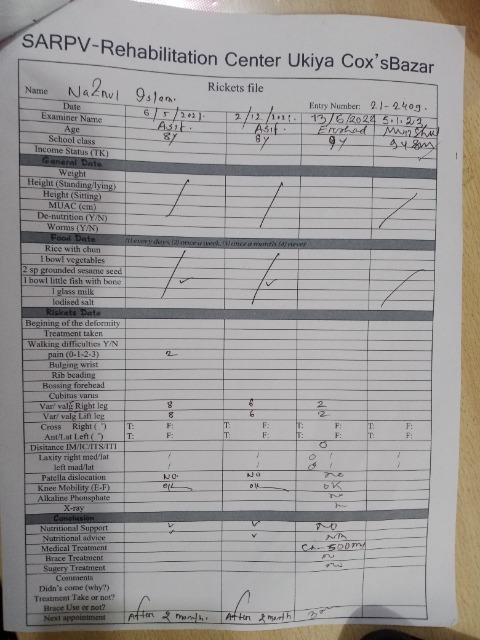 SARPV-Rehabilitation Center Ukiya Cox'sBazar
Rickets file
Name Na2nul Islam.
Entry Number: 21-2409.
Date 6/5/2021. 2/12/2021. 13/6/2022 5.1.23
Examiner Name Asif. Asif. Ershad
Age 8y 8y 9y 9y 8m
School class
Income Status (TK)
General Data
Weight
Height (Standing/lying)
Height (Sitting)
MUAC (cm)
De-nutrition (Y/N)
Worms (Y/N)
Food Data (1) every days, (2) once a week, (3) once a month (4) never
Rice with chun
1 bowl vegetables
2 sp grounded sesame seed
1 bowl little fish with bone
1 glass milk
Iodised salt
Rickets Data
Begining of the deformity
Treatment taken
Walking difficulties Y/N
pain (0-1-2-3) 2
Bulging wrist
Rib beading
Bossing forehead
Cubitus varus
Var/ valg Right leg 8 6 2
Var/ valg Lift leg 8 6 2
Cross Right ( ˚) T: F: T: F: T: F: T: F:
Ant/Lat Left ( ˚) T: F: T: F: T: F: T: F:
Disitance IM/IC/ITS/ITI 0
Laxity right med/lat / / 0 / /
left mad/lat / / 0 / /
Patella dislocation NO NO no
Knee Mobility (E-F) OK OK OK
Alkaline Phosphate no
X-ray
Conclusion
Nutritional Support ✓ ✓ NO
Nutritional advice ✓ ✓
Medical Treatment 500mg
Brace Treatment no
Sugery Treatment no
Comments
Didn's come (why?)
Treatment Take or not?
Brace Use or not?
Next appointment After 2 month. After 2 month